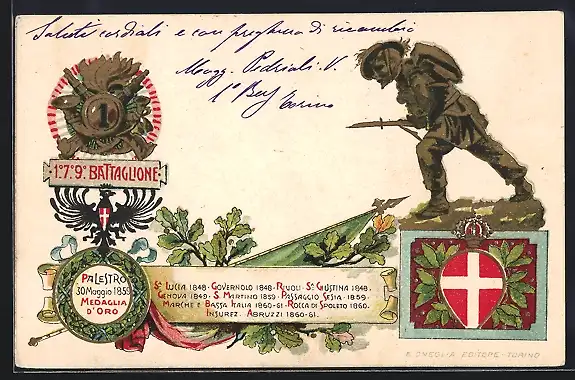 Saluti cordiali e con preghiera di ricambio
Magg. Pedriali V.
1° Bers Torino
1
1º.7º.9º. BATTAGLIONE
PALESTRO
30 Maggio 1859
MEDAGLIA
D'ORO
Sª LUCIA 1848 · GOVERNOLO 1848 · RIVOLI · Sª GIUSTINA 1848 ·
GENOVA 1849 · S. MARTINO 1859 · PASSAGGIO SESIA · 1859 ·
MARCHE E BASSA ITALIA 1860-61 · ROCCA DI SPOLETO 1860 ·
INSUREZ. ABRUZZI 1860-61.
EDITORE - TORINO